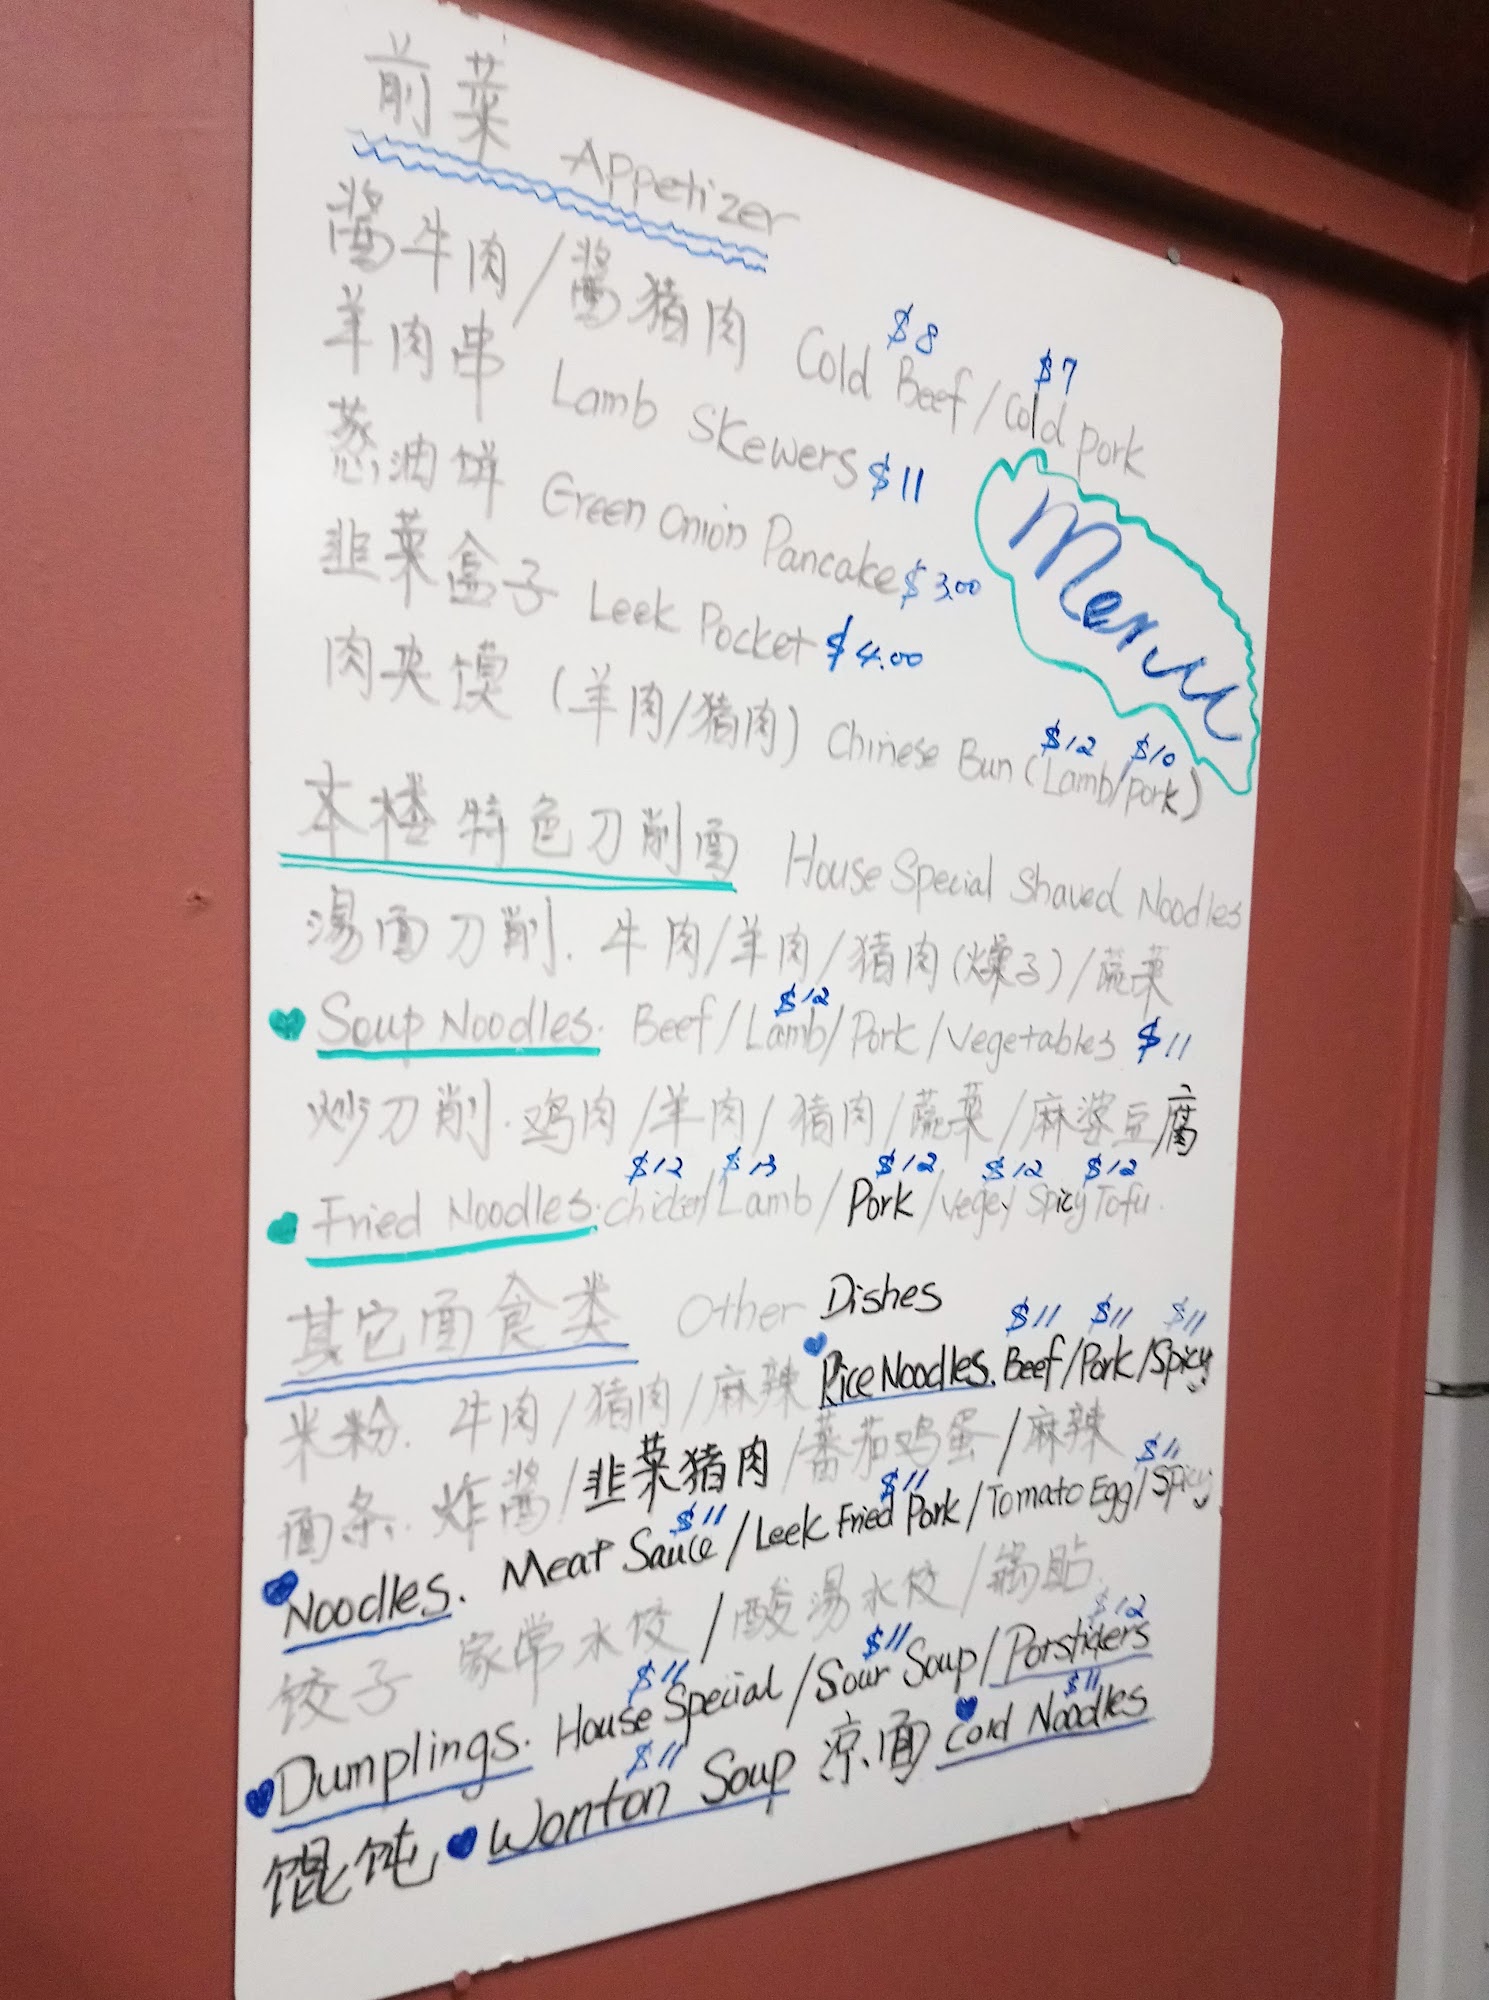 前菜 Appetizer
酱牛肉/酱猪肉 Cold Beef/Cold pork $8 $7
羊肉串 Lamb Skewers $11
葱油饼 Green Onion Pancake $3.00
韭菜盒子 Leek Pocket $4.00
Menu
肉夹馍 (羊肉/猪肉) Chinese Bun (Lamb/pork) $12 $10
本楼特色刀削面 House Special Shaved Noodles
湯面刀削. 牛肉/羊肉/猪肉(燥子)/蔬菜
Soup Noodles. Beef/Lamb/Pork/Vegetables $11
$12
炒刀削. 鸡肉/羊肉/猪肉/蔬菜/麻婆豆腐
$12 $13 $12 $12 $12
Fried Noodles. chicken/Lamb/Pork/vege/ Spicy Tofu.
其它面食类 Other Dishes
$11 $11 $11
米粉. 牛肉/猪肉/麻辣 Rice Noodles. Beef/Pork/Spicy
面条. 炸酱/韭菜猪肉/蕃茄鸡蛋/麻辣
$11 $11 $11
Noodles. Meat Sauce/Leek Fried Pork/Tomato Egg/Spicy
饺子 家常水饺/酸湯水饺/锅贴
$11 $11 $12
Dumplings. House Special/Sour Soup/Potstickers
$11 $11
馄饨 Wonton Soup 凉面 Cold Noodles